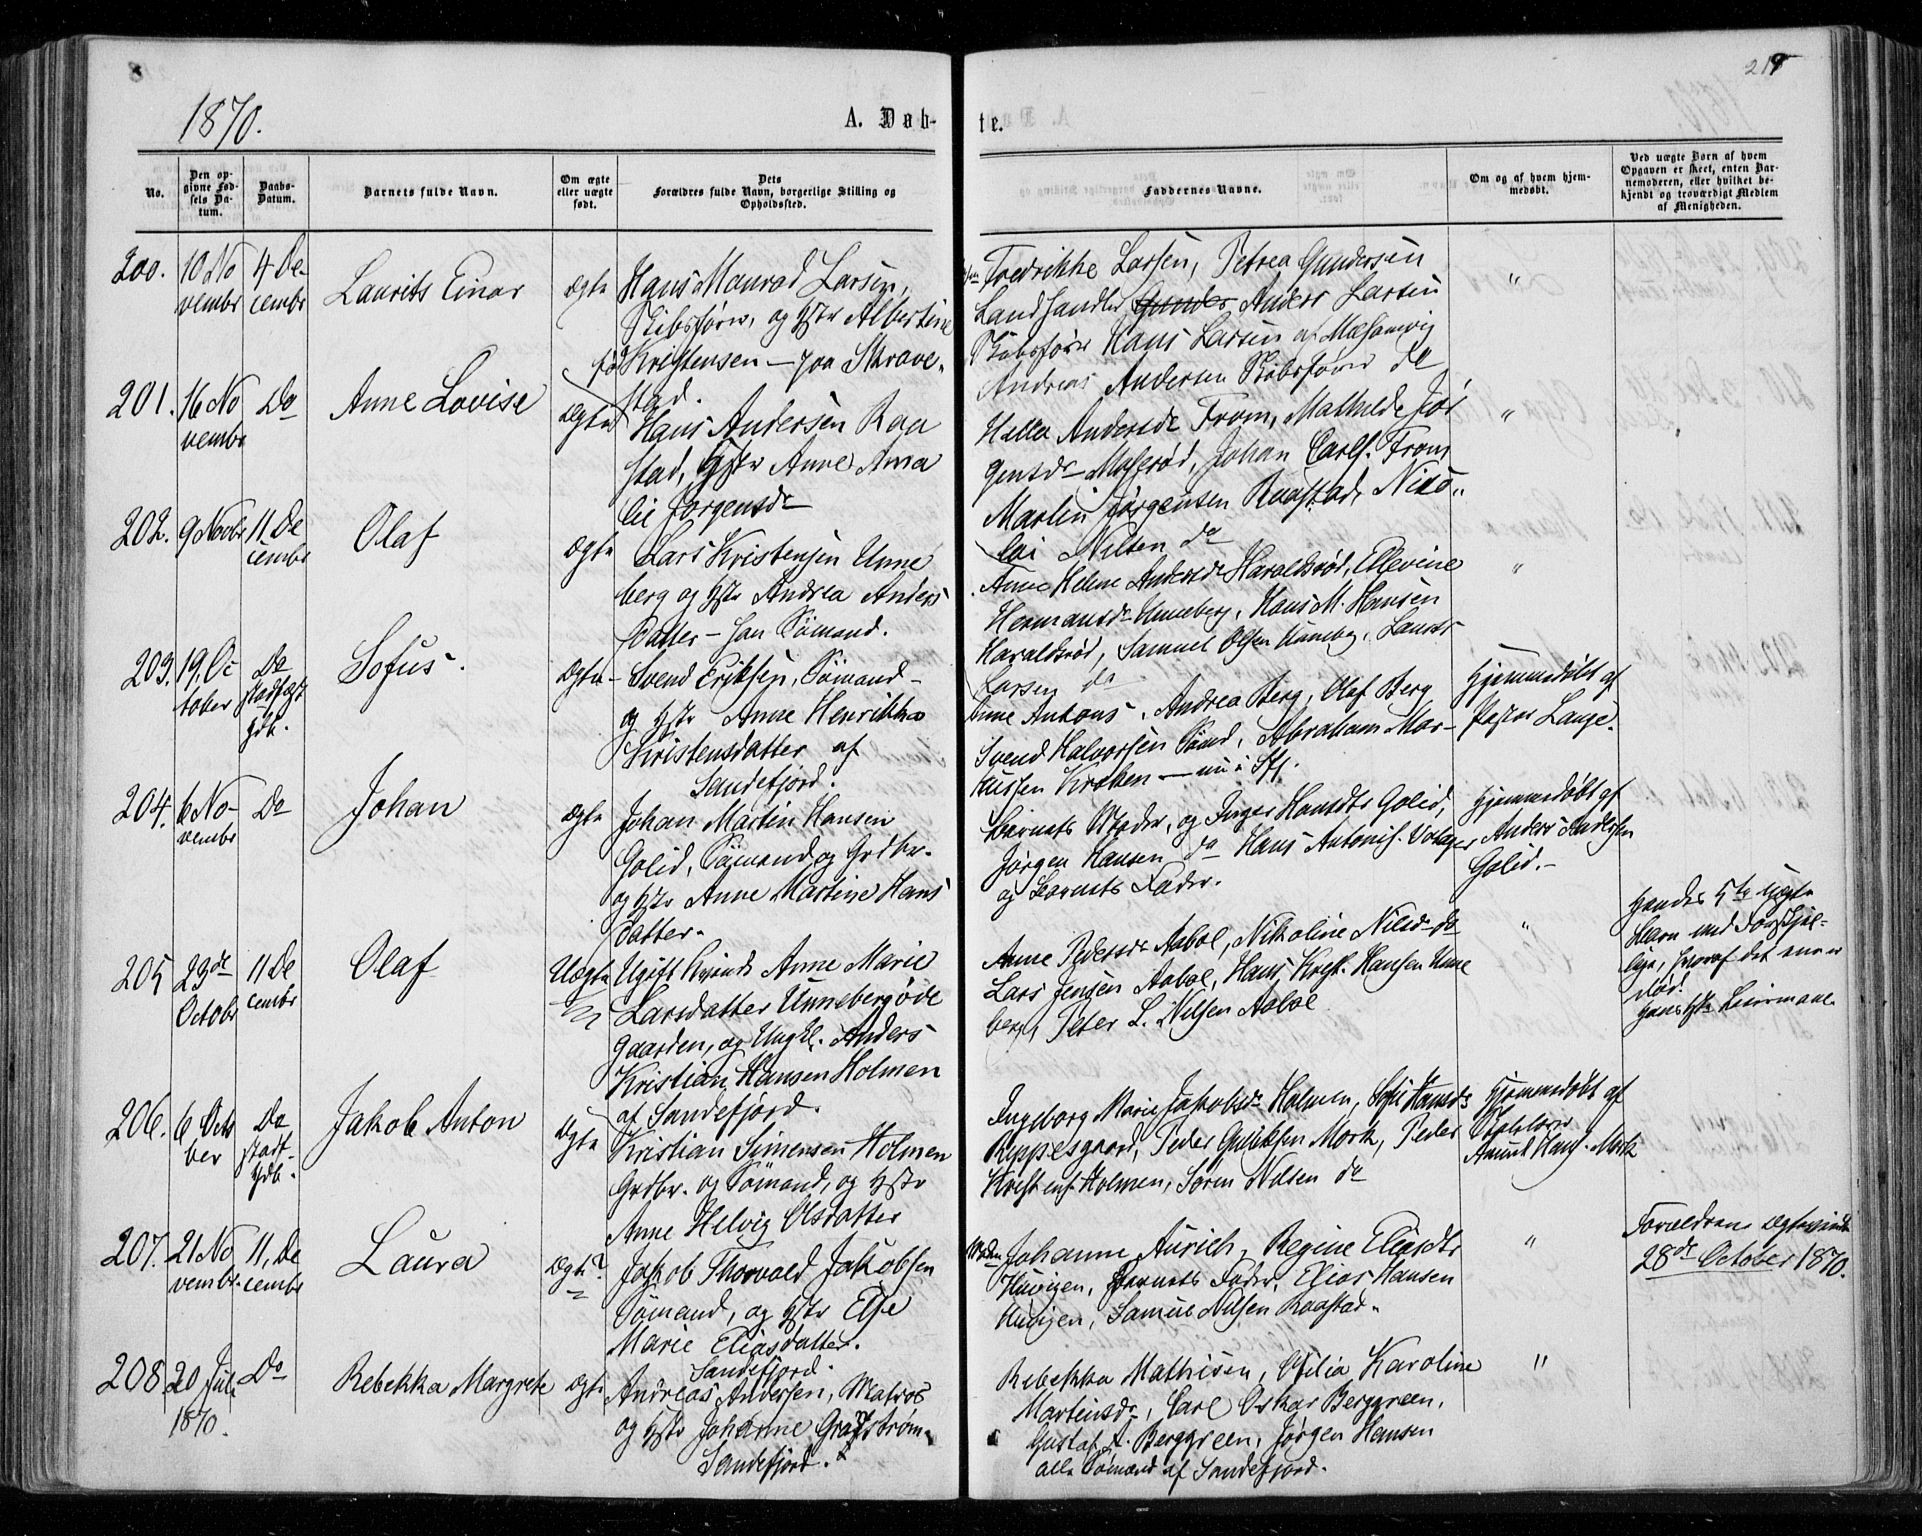 1870.
A. Døb-
te.
219
No.
Den op-
givne Fød-
sels Da-
tum.
Daabs-
Datum.
Barnets fulde Navn.
Om ægte
eller uægte
født.
Dets
Forældres fulde Navn, borgerlige Stilling og
Opholdssted.
Faddernes Navne.
Om og af hvem hjem-
medøbt.
Ved uægte Børn af hvem
Opgaven er skeet, enten Bar-
nemoderen, eller hvilket be-
kjendt og troværdigt Medlem
af Menigheden.
200.
10 No
vembr
4 De-
cembr
Laurits Einar
Ægte
Hans Manrad Larsen,
Skibsfører, og Hstr Albertine
fød Kristensen – paa Skrave-
stad.
Fredrikke Larsen, Petrea Gundersen
Landhandler Gunder Anders Larsen
Skibsfører Hans Larsen af
Andreas Andersen Skibsfører do
"
201.
16 No
vembr
Do
Anne Lovise
Ægte
Hans Andersen Raa
stad, Hstr Anne Ama
lie Jørgensdr
Helle Andersdr From, Mathilde Jør
gensdr Moserød, Johan Carls. From
Martin Jørgensen Raastad, Niko-
lai Nilsen do
"
202.
9 Novbr
11 De
cembr
Olaf
Ægte
Lars Kristensen Unne
berg og Hstr Andrea Anders
Datter – han Sømand.
Anne Helene Andersdr Haraldsrød, Ellevine
Hermansdr Unneberg, Hans M. Hansen
Haraldsrød, Samuel Olsen Unnebg, Laurits
Larsen do
"
203.
19. Oc
tober
Do
stadfæst
Hdb.
Sofus.
Ægte
Svend Eriksen, Sømand –
og Hstr Anne Henrikke
Kristensdatter af
Sandefjord.
Anne Antons, Andrea Berg, Olaf Berg
Svend Halvorsen Sømd, Abraham Mar-
kussen Kroken – nu i Sfj.
Hjemmedøbt af
Pastor Lange.
204.
6 No-
vembr
Do
Johan
Ægte
Johan Martin Hansen
Golid, Sømand og Grdbr.
og Hstr Anne Martine Hans
datter.
Barnets Moder, og Inger Hansdtr Golid,
Jørgen Hansen do Hans Antonis.
og Barnets Fader.
Hjemmedøbt af
Anders Andersen
Golid.–
205
23de
Octobr
11 De
cembr
Olaf
Uægte
Ugift Kvinde Anne Marie
Larsdatter Unneberg øde
gaarden, og Ungkl. Anders
Kristian Hansen Holmen
af Sandefjord.
Anne Pedersdr Aabol, Nikoline Nilsdr do
Lars Jensen Aabol, Hans Krist. Hansen Unne
berg, Peter L. Nilsen Aabol
"
Hendes 5te uægte
Barn med Forskjel-
lige, hvoraf det ene er
død.
Hans 1ste Leiermaal
206.
6 Octo
ber
Do
stadf.
Hdb.
Jakob Anton
Ægte
Kristian Simensen Holmen
Grdbr. og Sømand, og Hstr
Anne Helvig Olsdatter
Ingeborg Marie Jakobsdr Holmen, Sofie Hansdr
Ryppesgaard, Peder Gulliksen Mork, Peder
Kristens. Holmen, Søren Nilsen do
Hjemmedøbt af
Skolelærer
Amund Hans. Mork
207.
21 No
vembr.
11, De
cembr
Laura
Ægte?
Jakob Thorvald Jakobsen
Sømand, og Hstr Else
Marie Eliasdatter.
Sandefjord.
Moder Johanne Aurich, Regine Eliasdtr
Huvigen, Barnets Fader, Elias Hansen
Huvigen, Samuel Nilsen Raastad.
"
Forældrene ægteviede
28de October 1870.
208.
20 Juli
1870.
Do
Rebekka Margrete
Ægte
Andreas Andersen, Matros
og Hstr Johanne Grafstrøm.
Sandefjord.
Rebekka Mathisen, Otilia Karoline
Martinsdr, Carl Oskar Berggreen,
Gustaf A. Berggreen, Jørgen Hansen
alle Sømænd af Sandefjord.
"